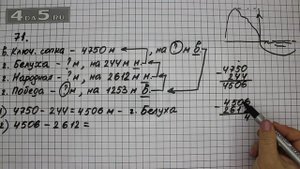 4DA5.RU
71.
в. Ключ. сопка - 4750 м, на ? м В
г. Белуха - ? м, на 244 м н.
г. Народная - ? м, на 2612 м н.
г. Победа - ? м, на 1253 м В.
1) 4750 - 244 = 4506 м - г. Белуха
2) 4506 - 2612 =
- 4750
244
4506
- 4506
261
4